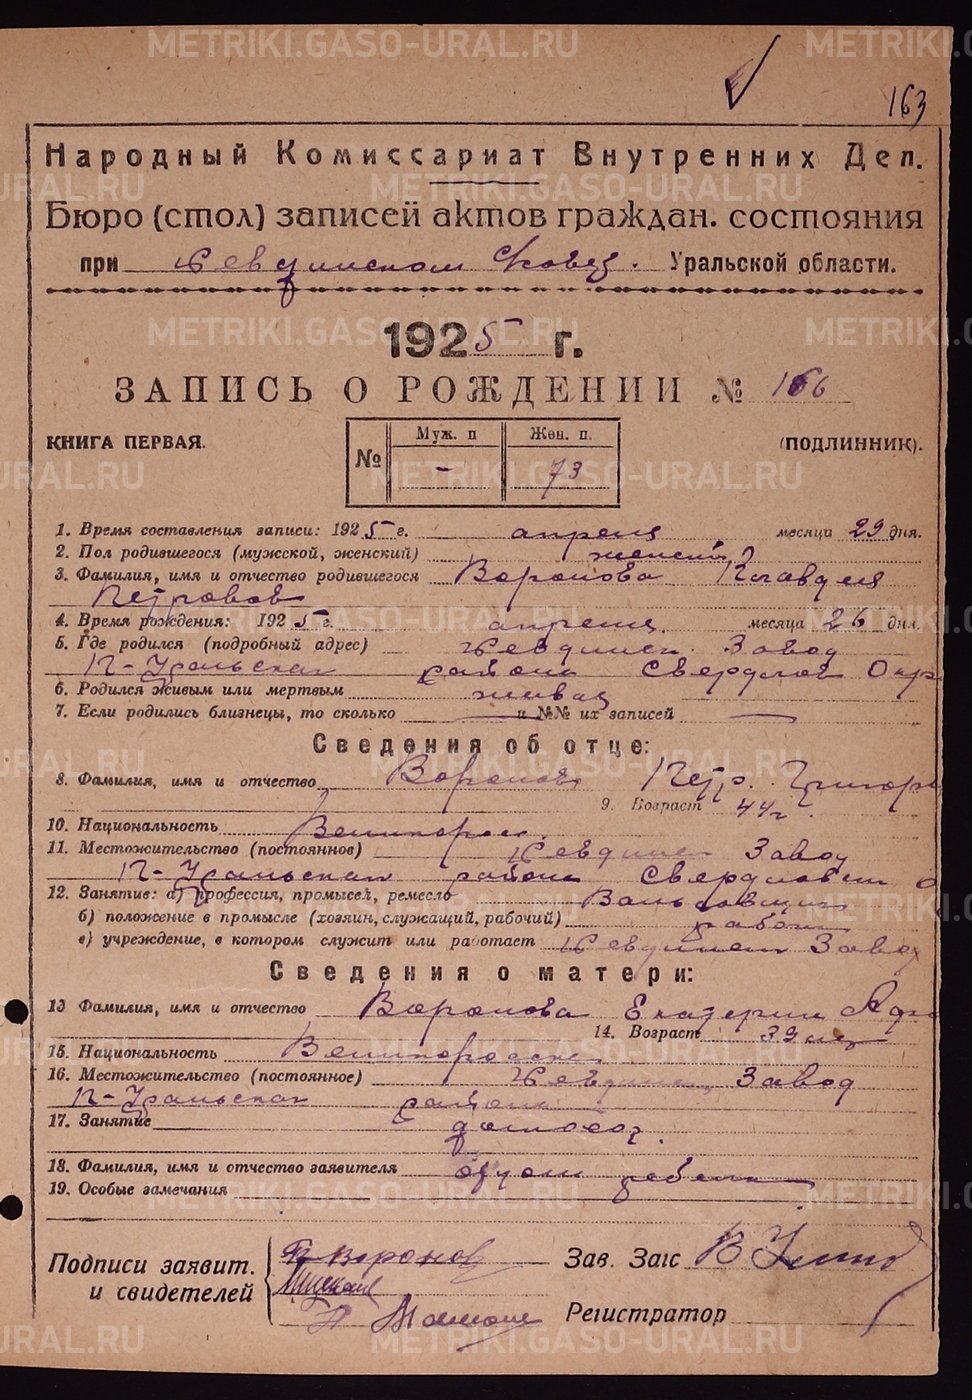 METRIKI.GASO-URAL.RU
163
Народный Комиссариат Внутренних Дел.
Бюро (стол) записей актов граждан. состояния
при Ревдинском Уральской области.
1925 г.
ЗАПИСЬ О РОЖДЕНИИ № 166
КНИГА ПЕРВАЯ. № Муж. п - Жен. п. 73 (ПОДЛИННИК).
1. Время составления записи: 1925 г. апреля месяца 29 дня.
2. Пол родившегося (мужской, женский) женский
3. Фамилия, имя и отчество родившегося Воронова Клавдия
Петровов
4. Время рождения: 1925 г. апреля месяца 26 дня.
5. Где родился (подробный адрес) Ревдинск. Завод
П-Уральская района Свердлов Окр
6. Родился живым или мертвым живая
7. Если родились близнецы, то сколько — и №№ их записей —
Сведения об отце:
8. Фамилия, имя и отчество Воронов Петр. Григорь
9. Возраст 44 г.
10. Национальность Великоросс.
11. Местожительство (постоянное) Ревдинс Завод
П-Уральская района Свердловск О
12. Занятие: а) профессия, промысел, ремесло Вальцовщик
б) положение в промысле (хозяин, служащий, рабочий) рабоч
в) учреждение, в котором служит или работает Ревдинск Завод
Сведения о матери:
13 Фамилия, имя и отчество Воронова Екатерин
14. Возраст 39 лет
15. Национальность Великоросска
16. Местожительство (постоянное) Ревдинс, Завод
П-Уральская района
17. Занятие домохоз.
18. Фамилия, имя и отчество заявителя отцом ребенка
19. Особые замечания
Подписи заявит. П Воронов Зав. Загс
и свидетелей
Регистратор